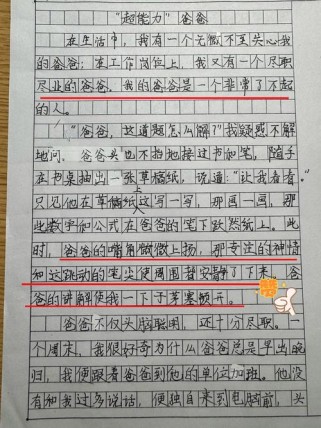 “超能力”爸爸
在生活中，我有一个无微不至关心我
的爸爸；在工作岗位上，我又有一个尽职
尽业的爸爸。我的爸爸是一个非常了不起
的人。
“爸爸，这道题怎么解？”我疑惑不解
地问。爸爸头也不抬地接过书和笔，随手
在书桌抽出一张草稿纸，说道：“让我看看。”
只见他在草稿纸上这写一写，那画一画，那
些数字和公式在爸爸的笔下跃然纸上。此
时，爸爸的嘴角微微上扬，那专注的神情
和这跳动的笔尖使周围都安静了下来。爸
爸的讲解使我一下子茅塞顿开。
爸爸不仅头脑聪明，还十分尽职。一
个周末，我很好奇为什么爸爸总是早出晚
归，我便跟着爸爸到他的单位加班。他没
有和我过多说话，便独自来到电脑前，头